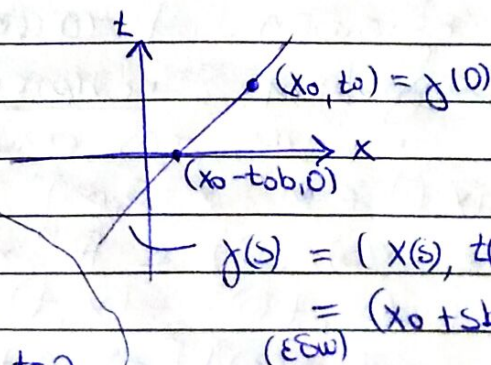 t
(x₀, t₀) = γ(0)
x
(x₀-t₀b, 0)
γ(s) = (x(s), t(
= (x₀ + sb